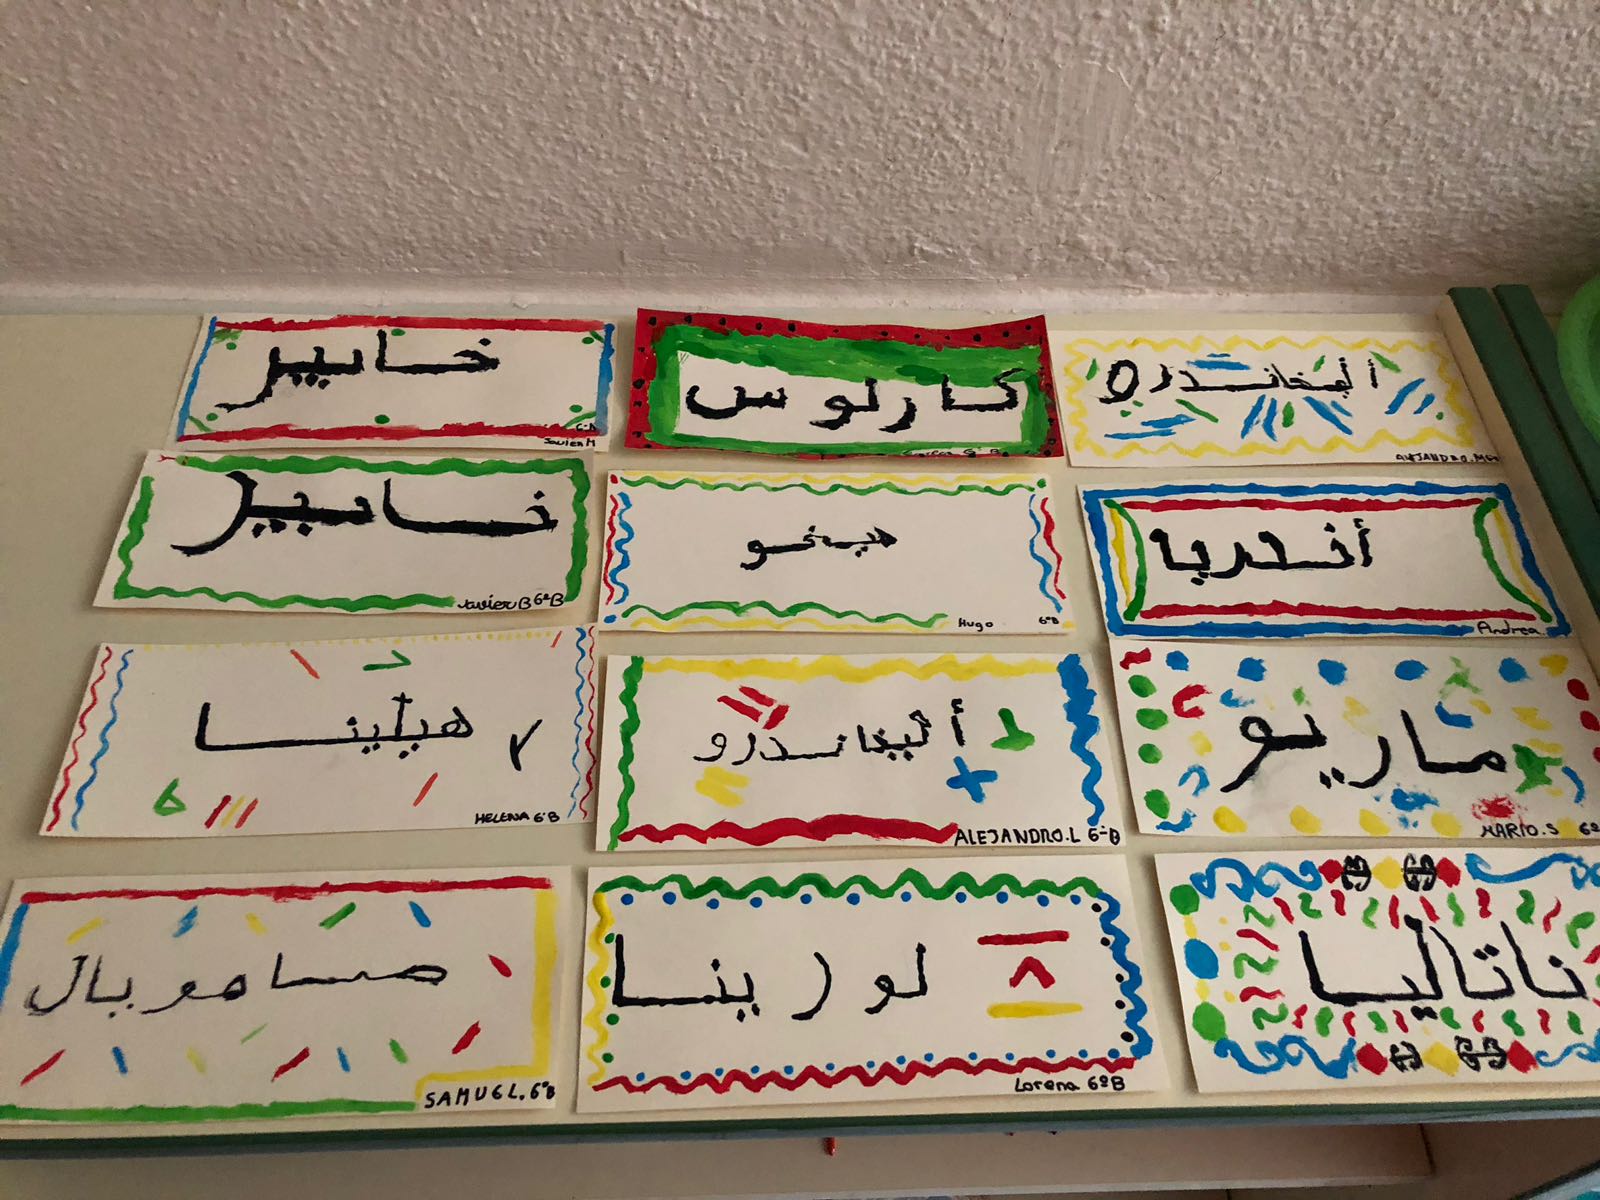 خابيير
6ºB
Javier M
كارلوس
6º B
أليخاندرو
ALEJANDRO.M 6º
خابيير
Javier B 6ºB
هيخو
Hugo 6ºB
أندريا
Andrea.
هيلينا
HELENA 6ºB
أليخاندرو
ALEJANDRO.L 6ºB
ماريو
MARIO.S 6º
صامويال
SAMUEL. 6ºB
لورينا
Lorena 6ºB
ناتاليا
6B
6B